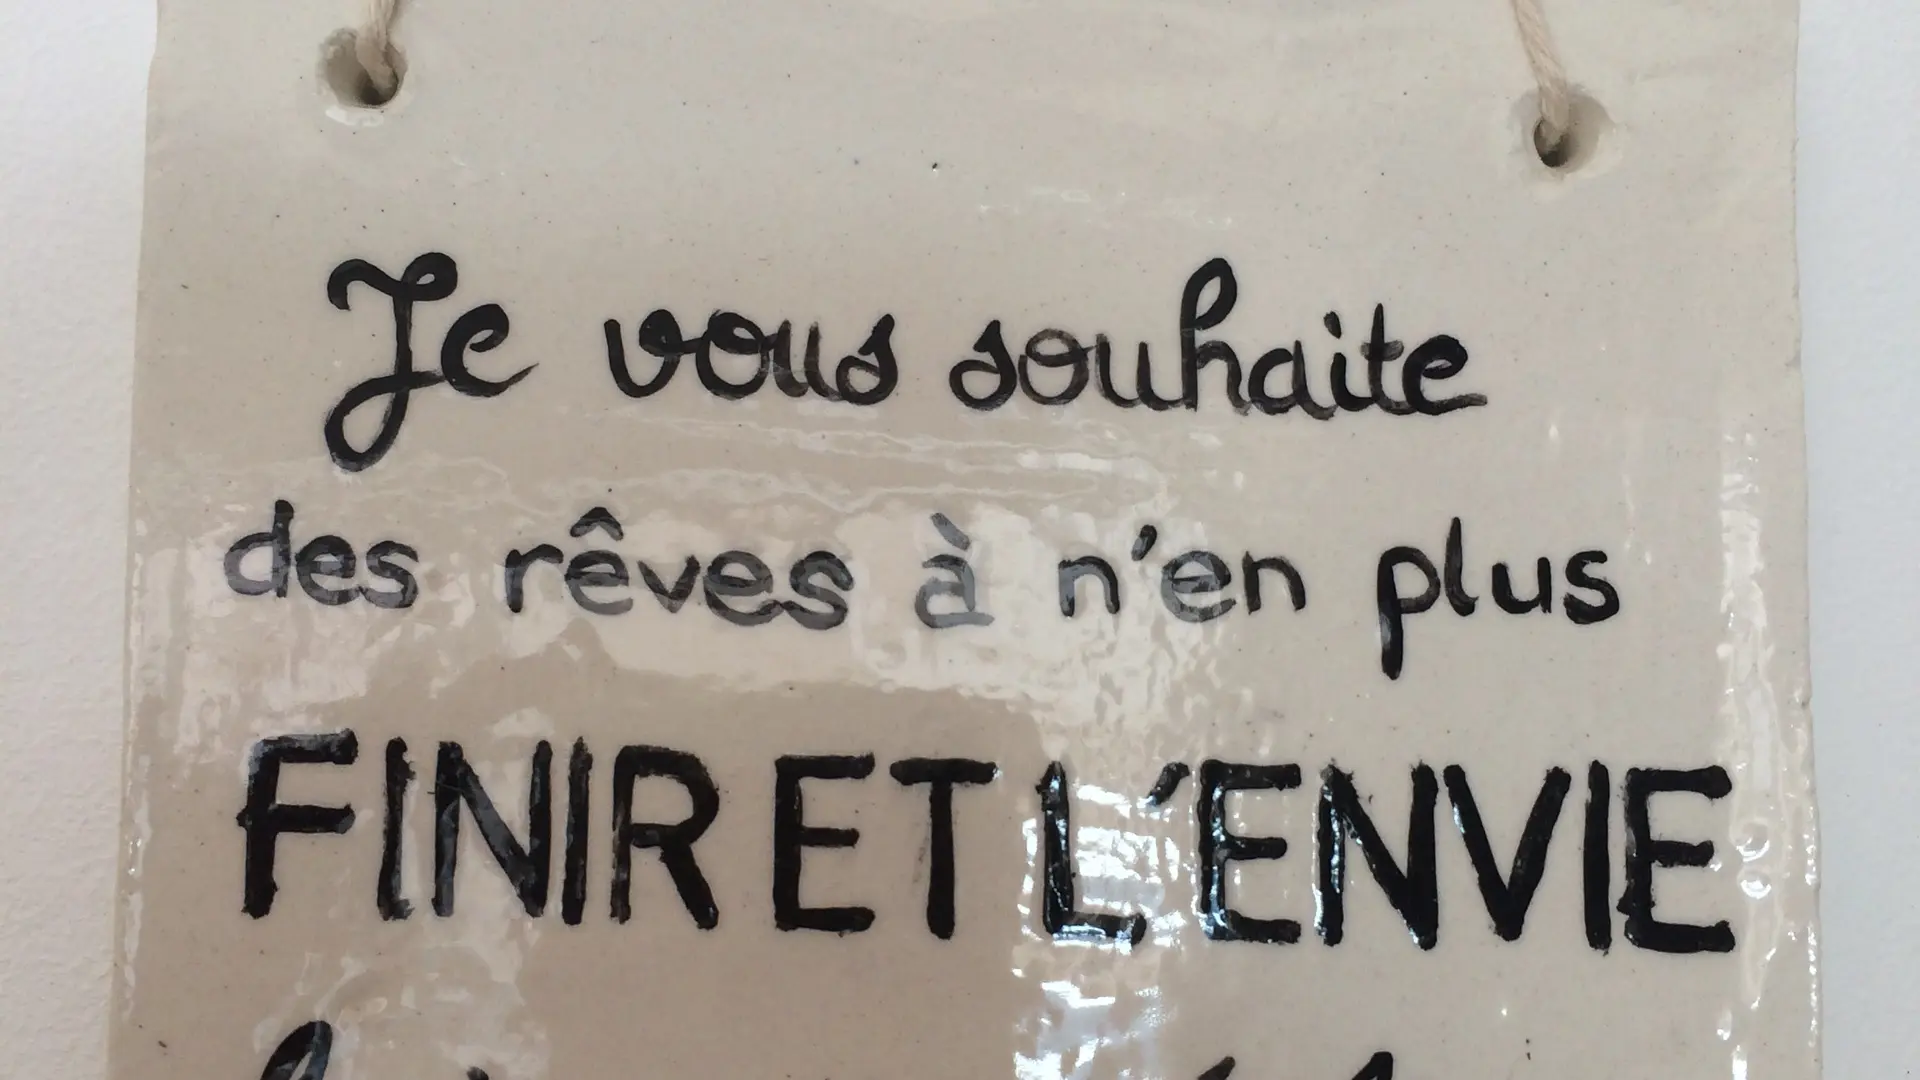 Je vous souhaite
des rêves à n'en plus
FINIR ET L'ENVIE